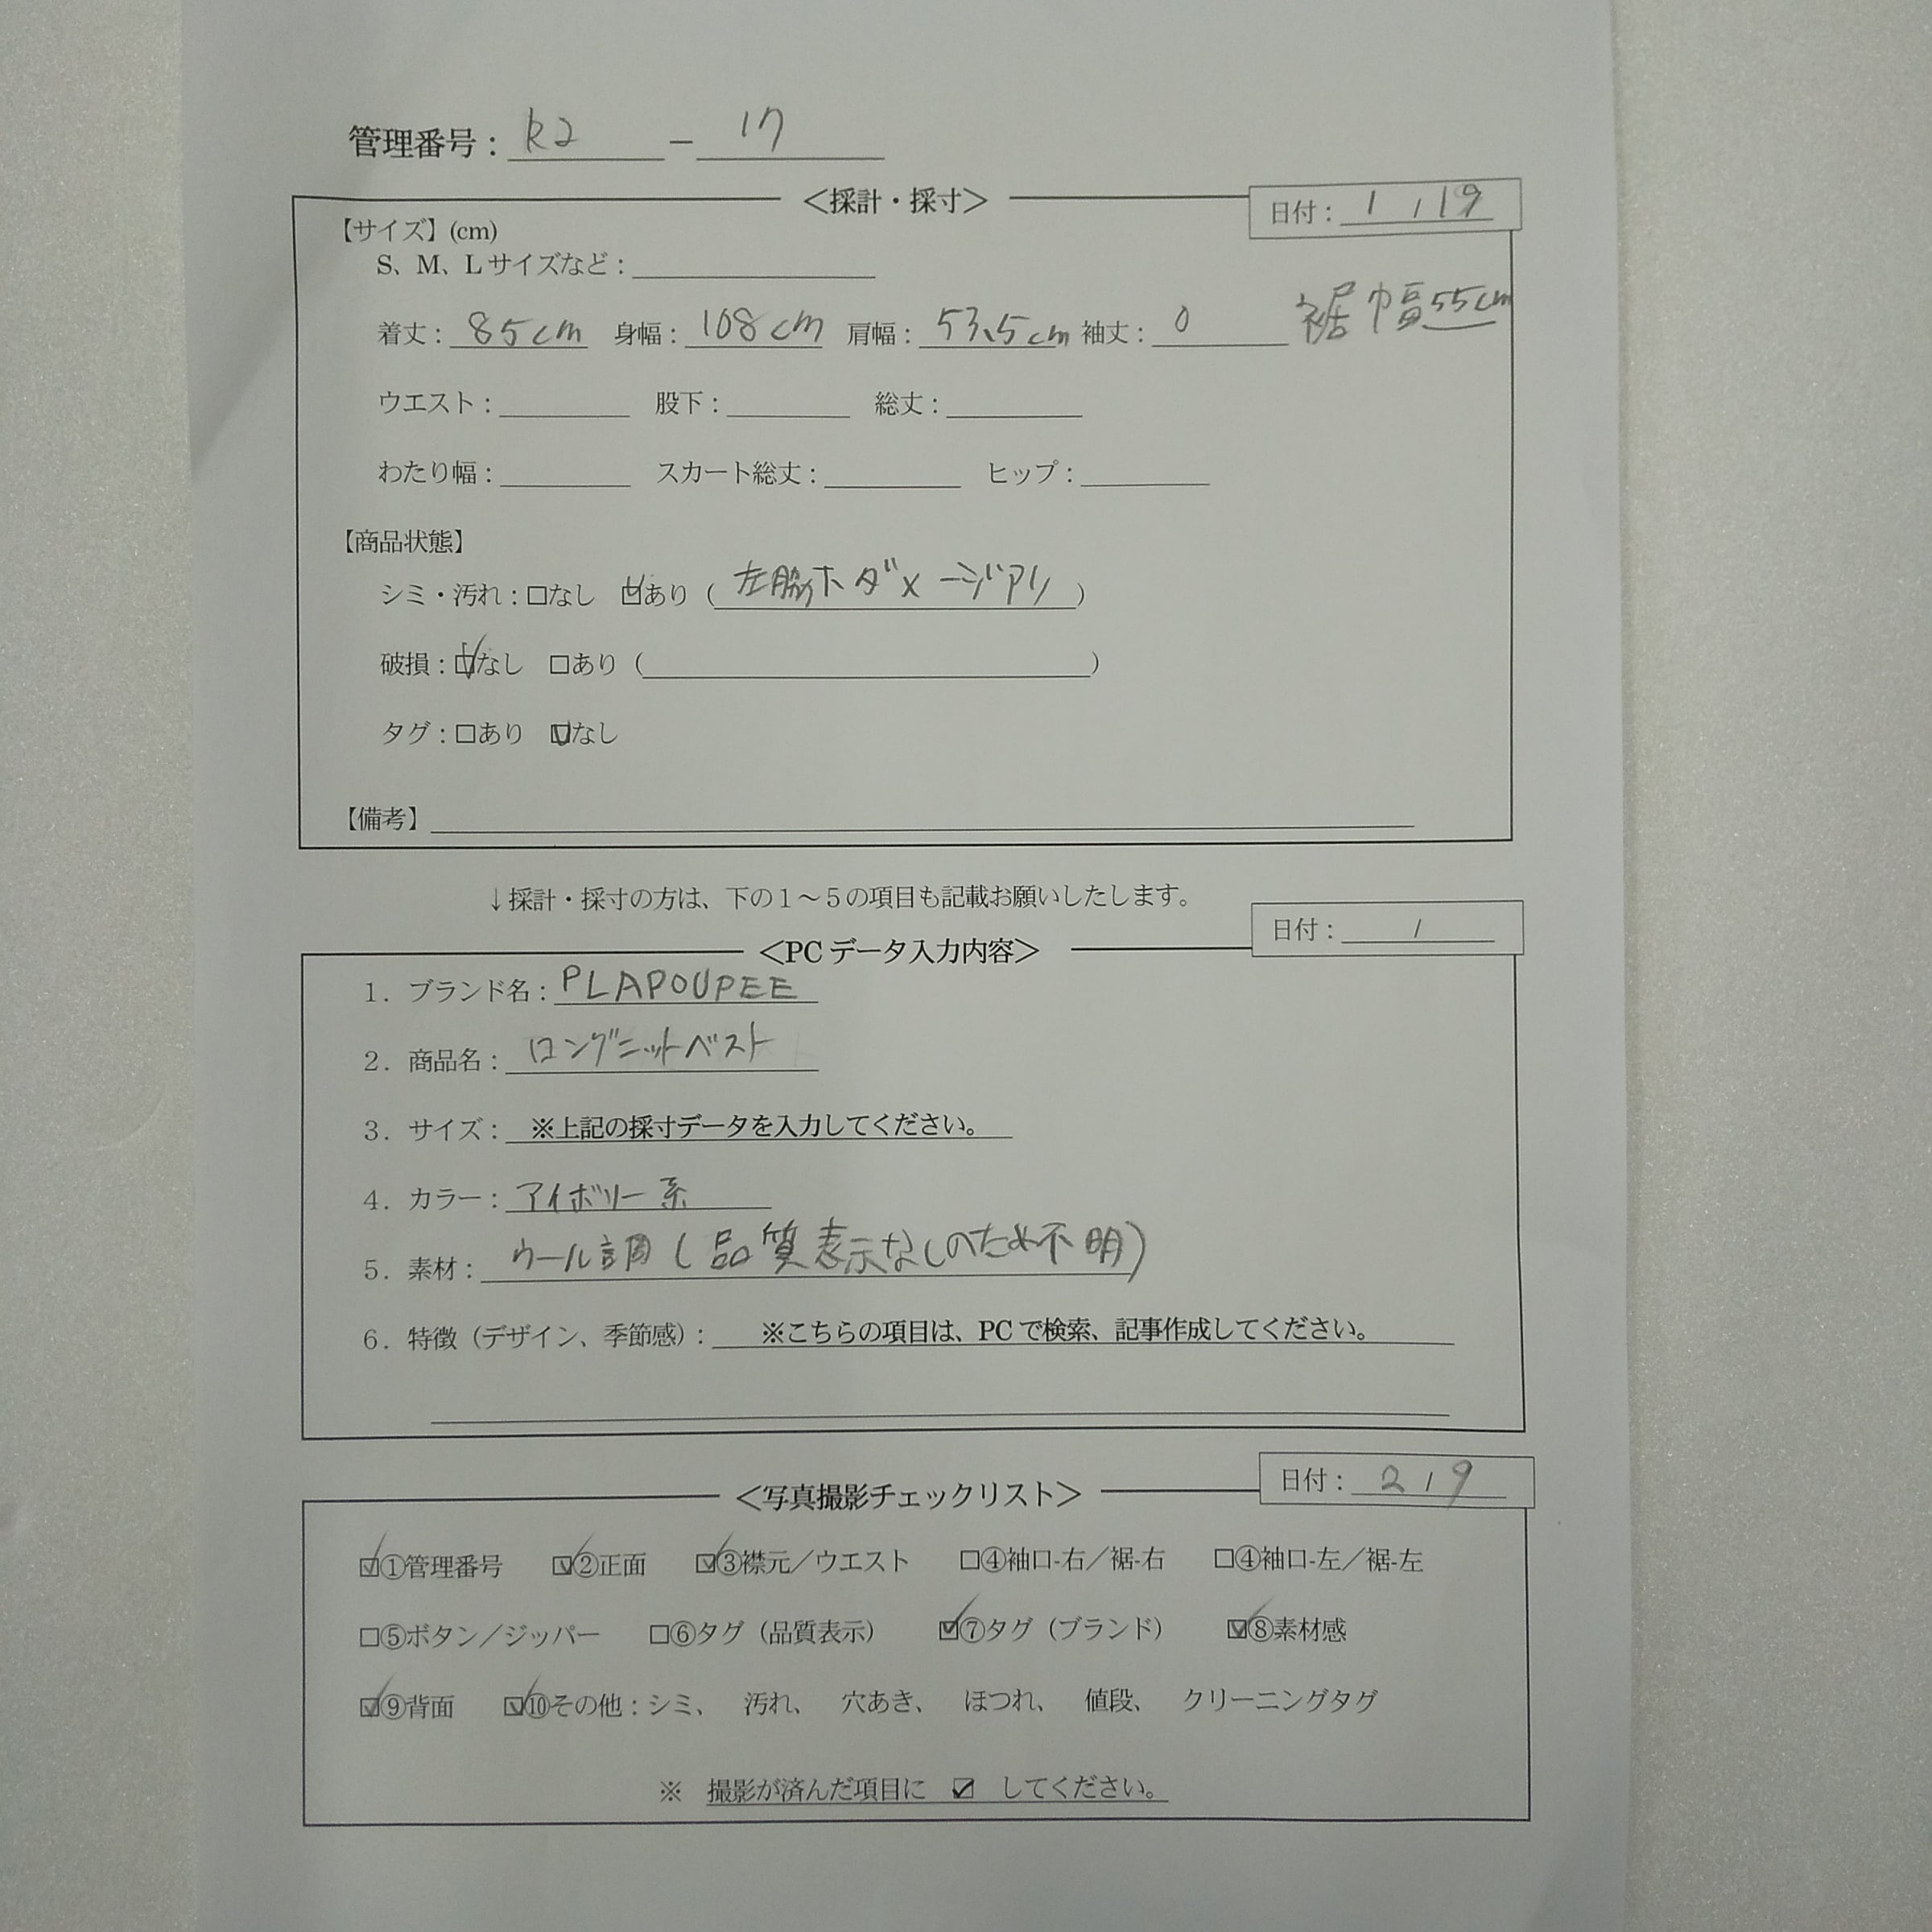 管理番号：k2 － 17
＜採計・採寸＞
日付：1 / 19
【サイズ】(cm)
S、M、Lサイズなど：
着丈：85cm 身幅：108cm 肩幅：53.5cm 袖丈：0 裾巾幅55cm
ウエスト： 股下： 総丈：
わたり幅： スカート総丈： ヒップ：
【商品状態】
シミ・汚れ：□なし ☑あり（左脇ホダメージアリ）
破損：☑なし □あり（ ）
タグ：□あり ☑なし
【備考】
↓採計・採寸の方は、下の１～５の項目も記載お願いしたします。
＜PCデータ入力内容＞
日付： /
1．ブランド名：PLAPOUPEE
2．商品名：ロングニットベスト
3．サイズ：※上記の採寸データを入力してください。
4．カラー：アイボリー系
5．素材：ウール調(品質表示なしのため不明)
6．特徴（デザイン、季節感）：※こちらの項目は、PCで検索、記事作成してください。
＜写真撮影チェックリスト＞
日付：2 / 9
☑①管理番号 ☑②正面 ☑③襟元／ウエスト □④袖口-右／裾-右 □④袖口-左／裾-左
□⑤ボタン／ジッパー □⑥タグ（品質表示） ☑⑦タグ（ブランド） ☑⑧素材感
☑⑨背面 ☑⑩その他：シミ、 汚れ、 穴あき、 ほつれ、 値段、 クリーニングタグ
※ 撮影が済んだ項目に ☑ してください。